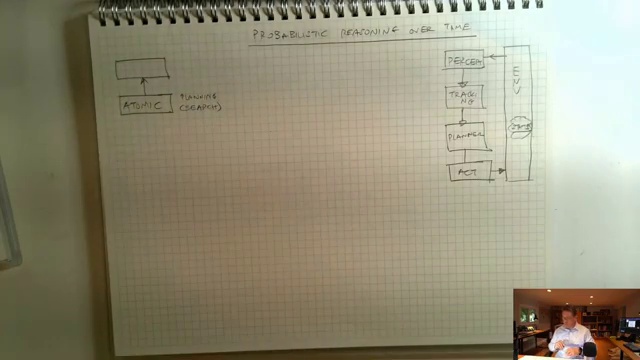 PROBABILISTIC REASONING OVER TIME
ATOMIC
PLANNING
(SEARCH)
PERCEP
TRACK
ING
PLANNER
ACT
ENV